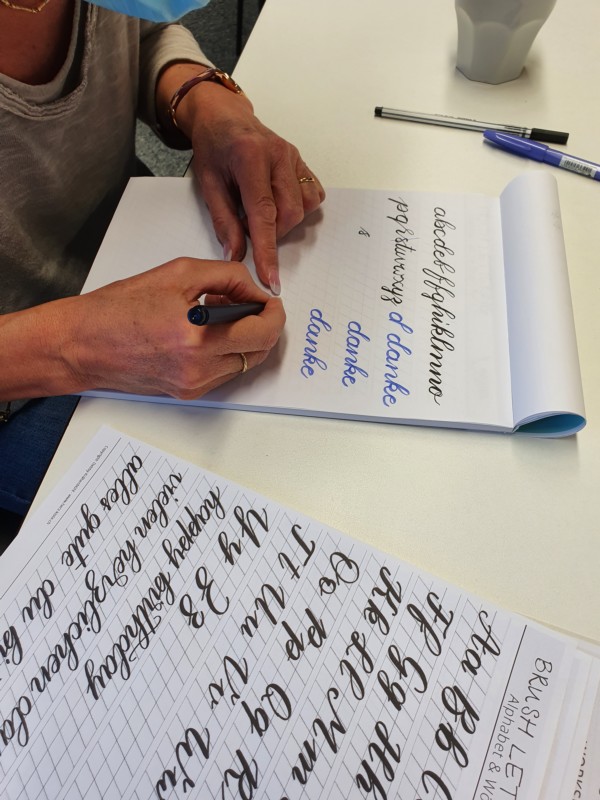 abcdefffghiklmno
pqrstuvwxyz d danke
s danke
danke
BRUSH LET
Alphabet & Wo
Aa Bb C
Ff Gg Hh
Kk Ll Mm
Oo Pp Qq R
Tt Uu Vv Ww
Yy Zz
happy birthday
vielen herzlichen da
alles gute du bi